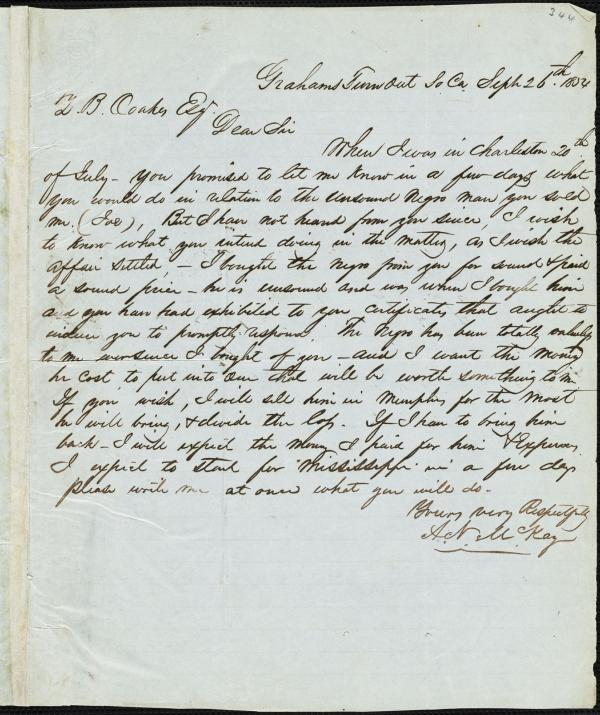 344
Grahams Turn Out So Ca Sept 26th. 1854
Z. B. Oakes Esqr.
Dear Sir
When I was in Charleston 20th
of July - you promised to let me know in a few days what
you would do in relation to the unsound Negro man you sold
me (Joe), But I have not heard from you since, I wish
to know what you intend doing in the matter, as I wish the
affair settled, - I bought the Negro from you for sound & paid
a sound price - he is unsound and was when I bought him
and you have had exhibited to you certificates that aught to
induce you to promptly respond. The Negro has been totally
to me ever since I bought of you - and I want the money
he cost to put into one that will be worth something to me
If you wish, I will sell him in Memphis for the most
he will bring, & divide the loss. If I have to bring him
back - I will expect the money I paid for him & Expenses
I expect to start for Mississippi in a few days
please write me at once what you will do -
Yours very Respectfully
A. N. McKay